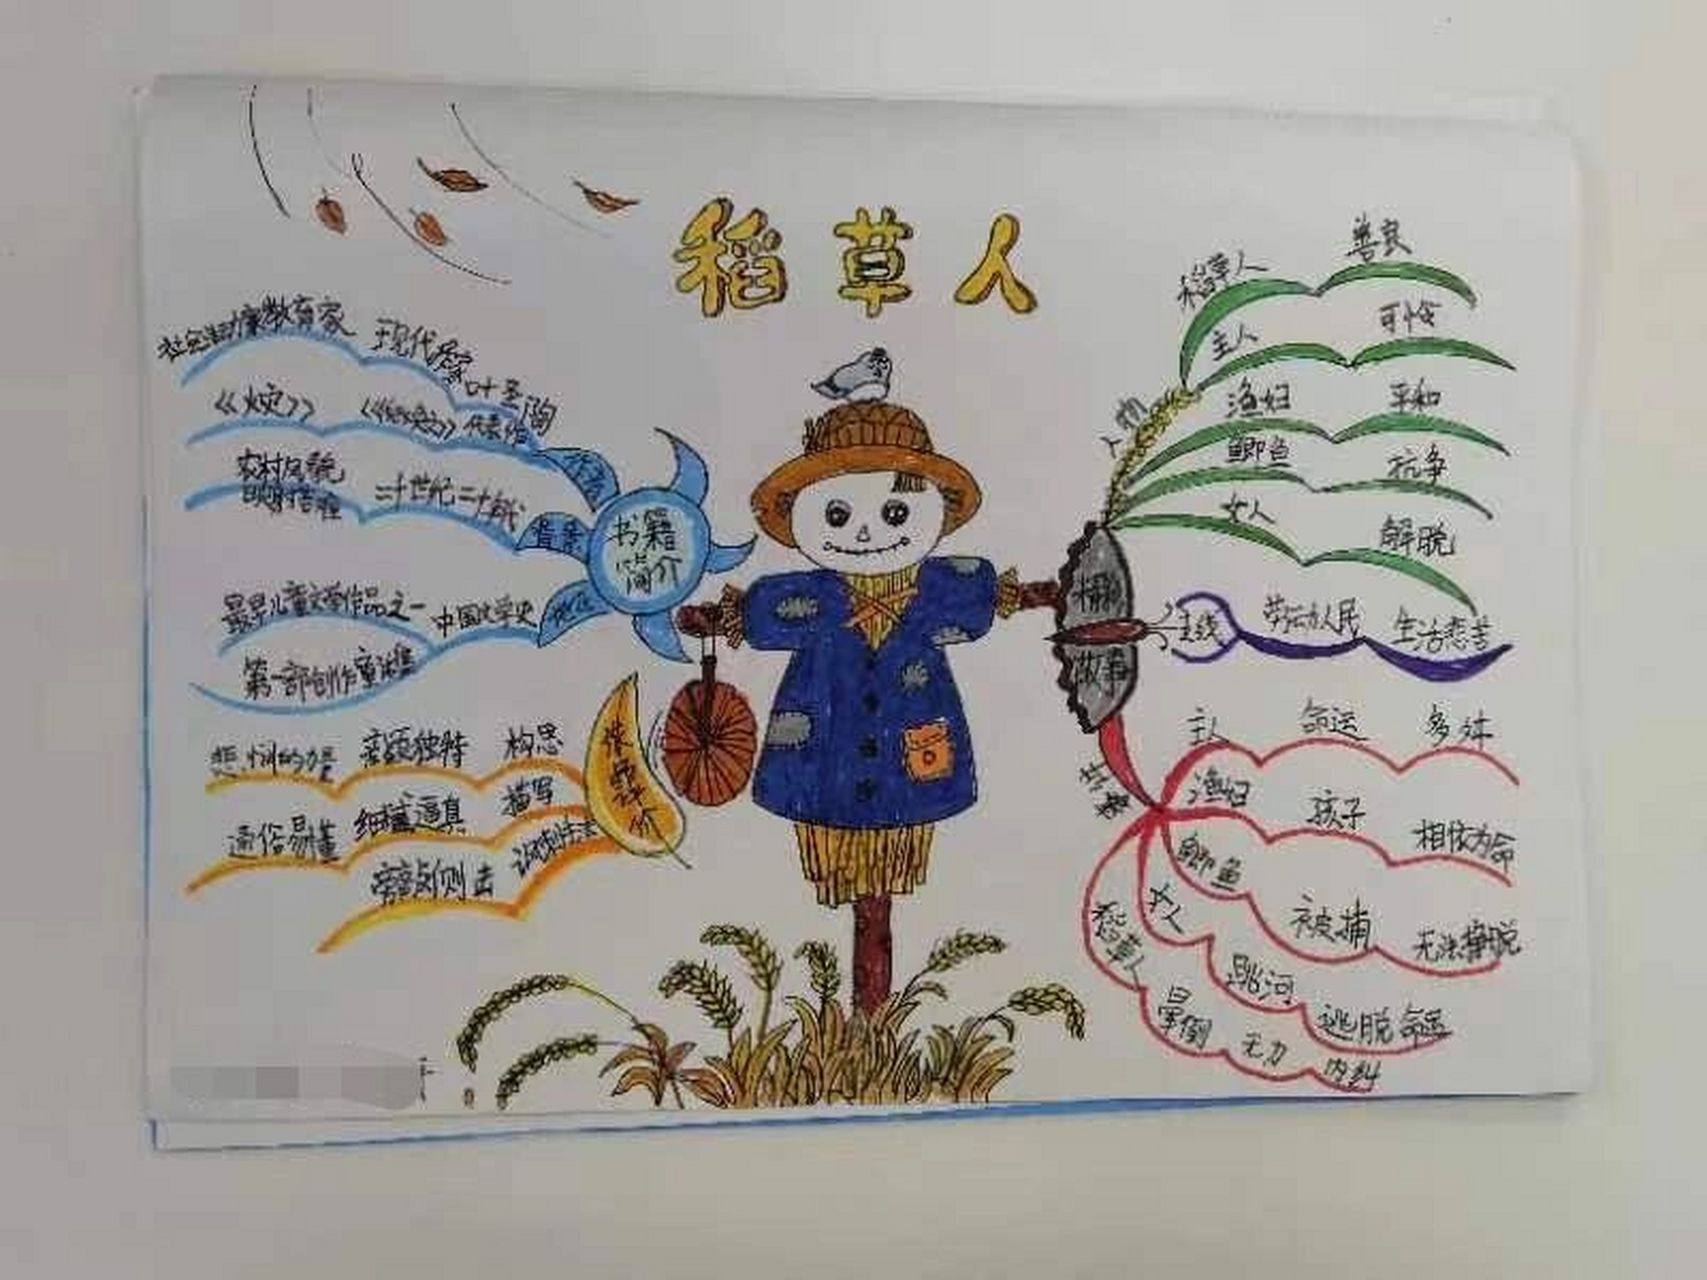 稻草人
书籍
简介
作者
现代作家 叶圣陶
教育家
代表作
《火灾》
背景
二十世纪二十年代
农村风貌
地位
中国文学史
最早儿童文学作品之一
第一部创作童话集
作品评价
构思
独特
描写
细腻逼真
通俗易懂
人物
稻草人 善良
主人 可怜
渔妇 平和
鲫鱼 抗争
女人 解脱
故事
主线
劳动人民
生活悲苦
主人 命运 多舛
渔妇 孩子 相依为命
鲫鱼 被捕 无法挣脱
女人 跳河 逃脱命运
稻草人 晕倒 无力 内纠